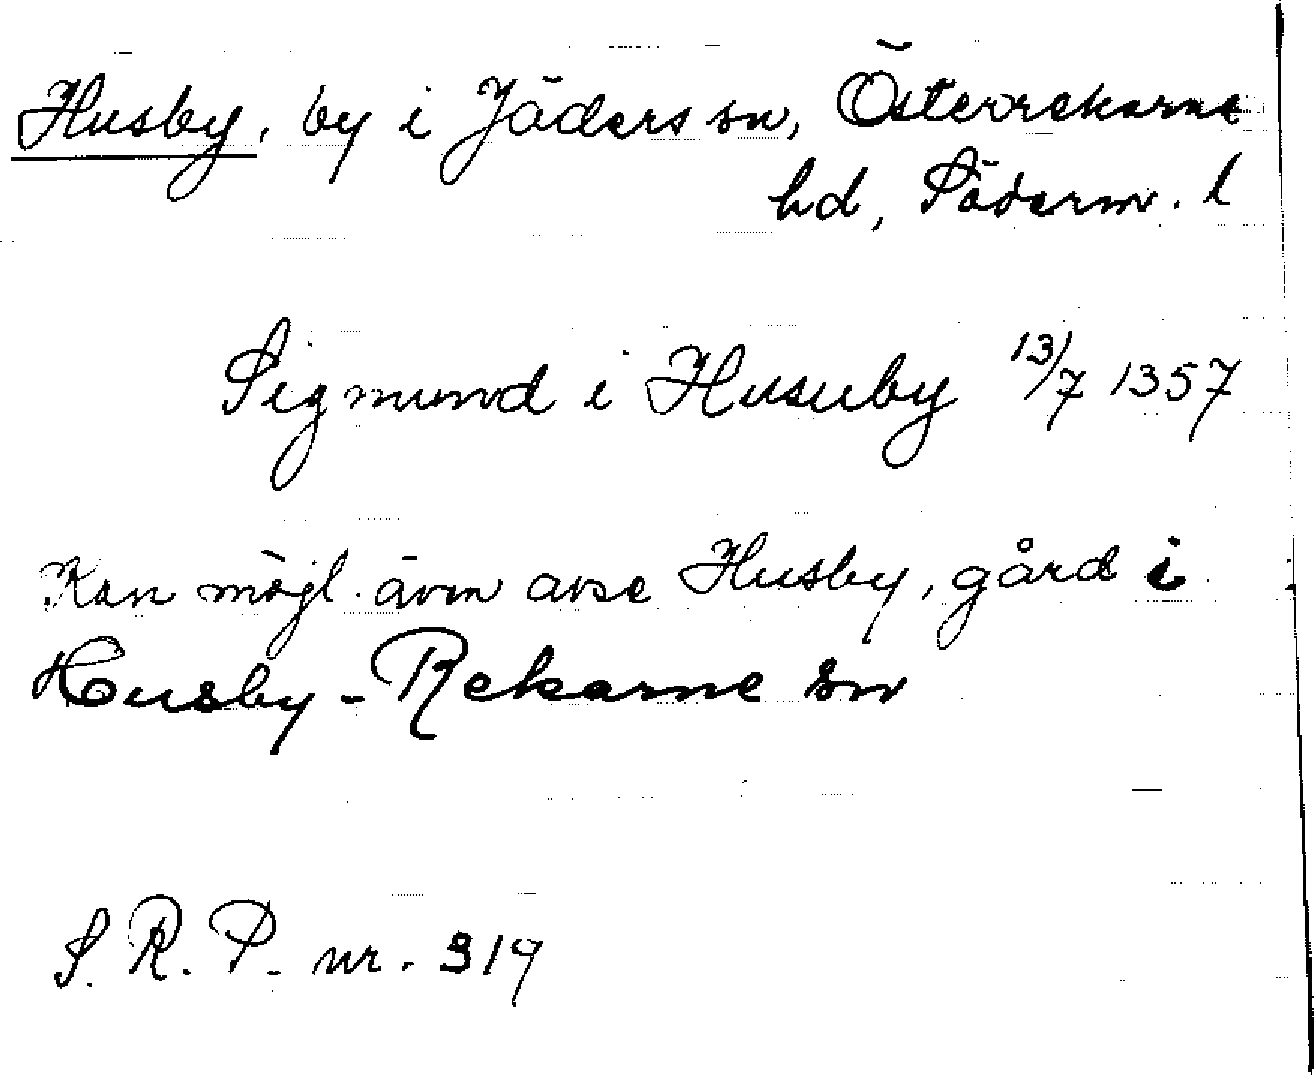 Husby, by i Jäders sn, Österrekarne
hd, Söderm. l
Sigmund i Husuby 13/7 1357
Kan möjl. även avse Husby, gård i
Husby-Rekarne sn
S. R. P. nr. 319